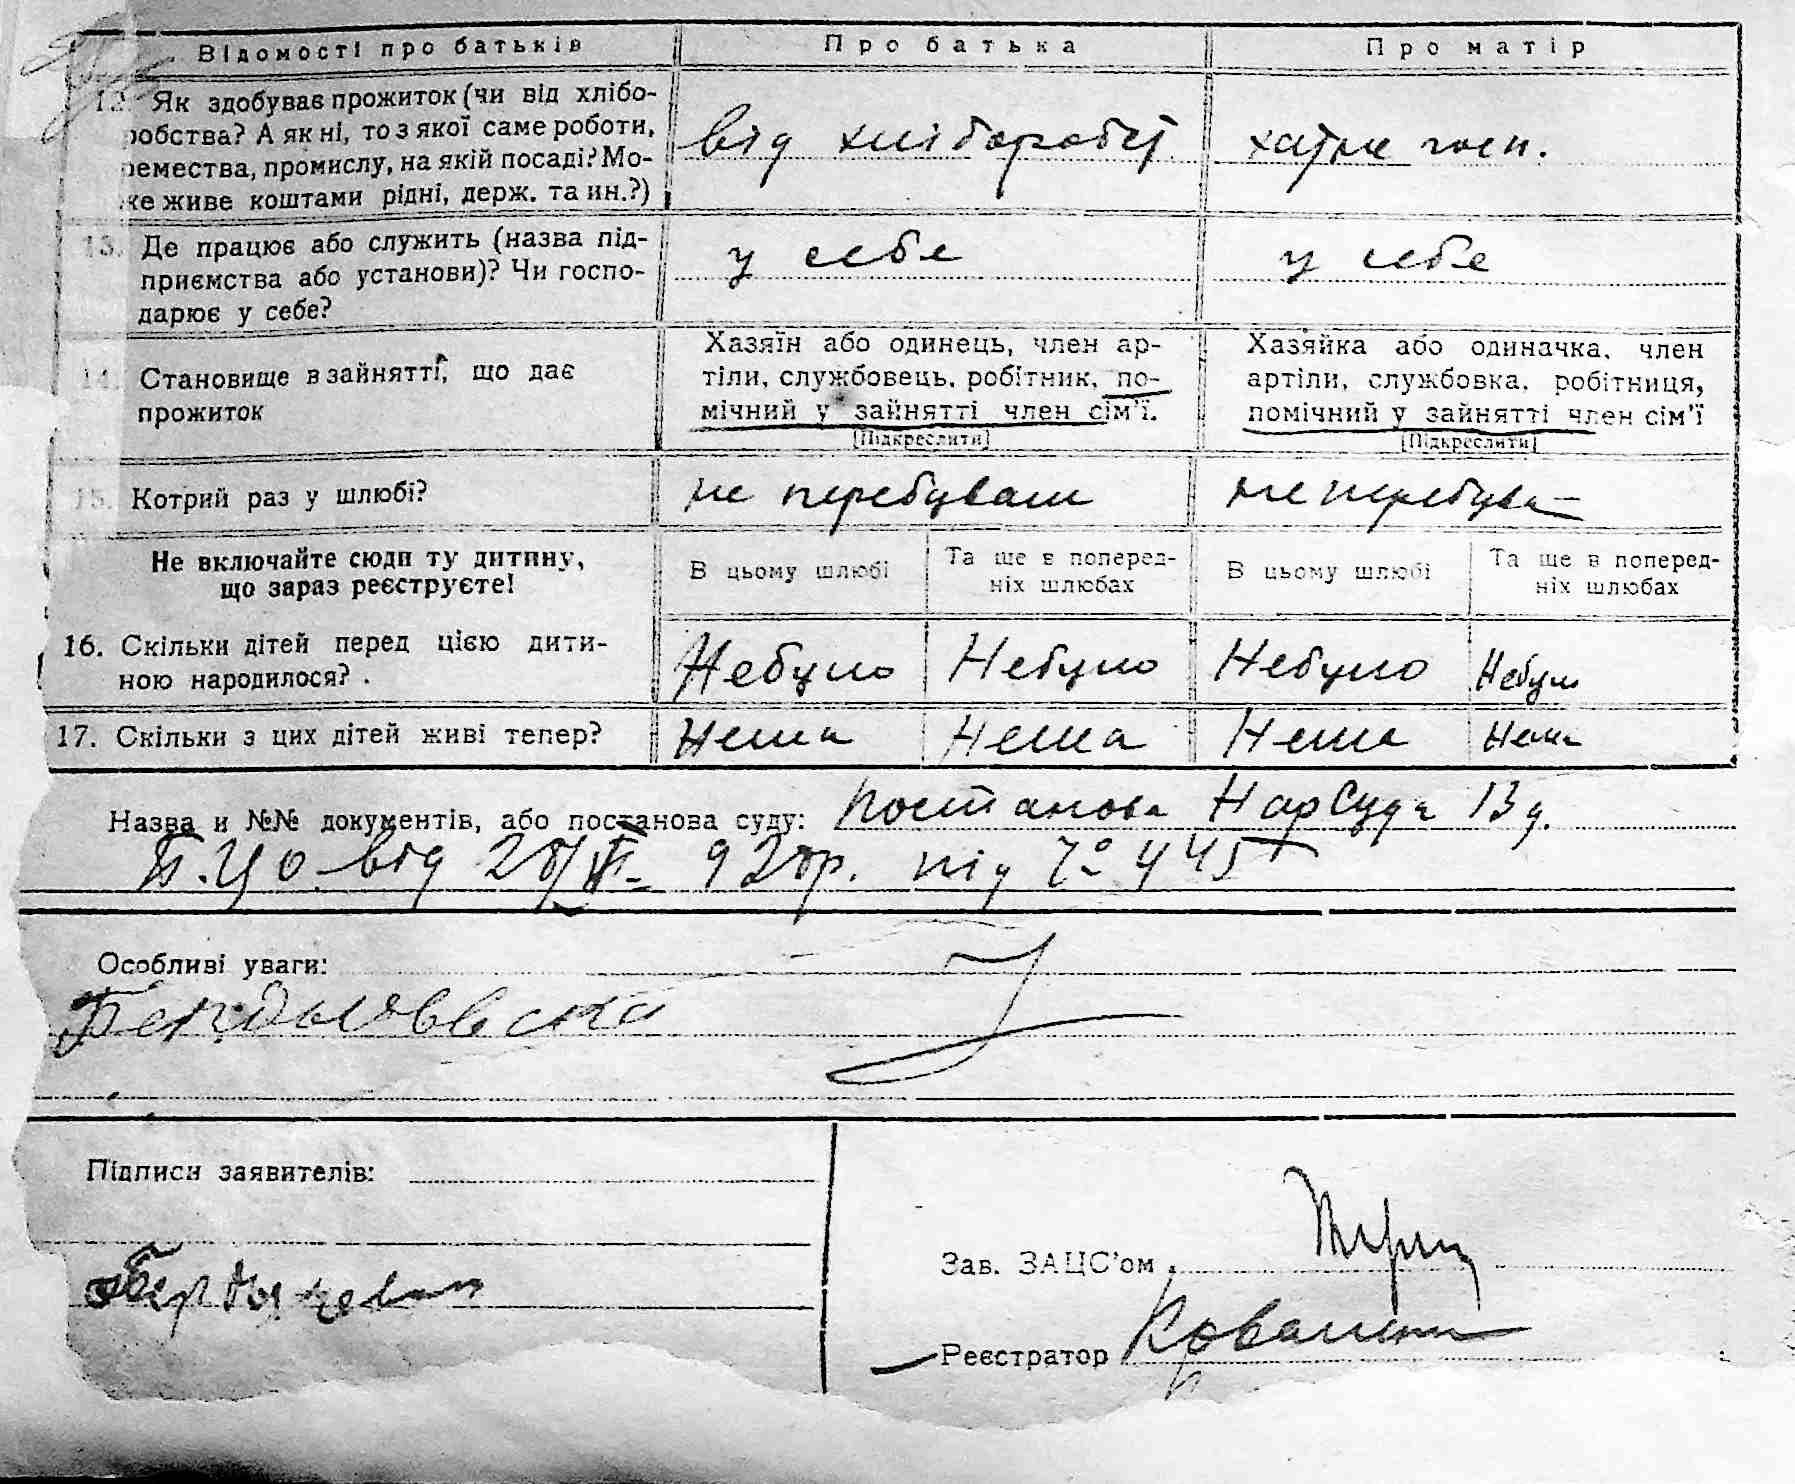 Відомості про батьків
Про батька
Про матір
12. Як здобуває прожиток (чи від хлібо-
робства? А як ні, то з якої саме роботи,
ремества, промислу, на якій посаді? Мо-
же живе коштами рідні, держ. та ин.?)
від хліборобст
хатнє госп.
13. Де працює або служить (назва під-
приємства або установи)? Чи госпо-
дарює у себе?
у себе
у себе
14. Становище в зайнятті, що дає
прожиток
Хазяїн або одинець, член ар-
тіли, службовець, робітник, по-
мічний у зайнятті член сім'ї.
[Підкреслити]
Хазяйка або одиначка, член
артіли, службовка, робітниця,
помічний у зайнятті член сім'ї
[Підкреслити]
15. Котрий раз у шлюбі?
не перебували
не перебува
Не включайте сюди ту дитину,
що зараз реєструєте!
В цьому шлюбі
Та ще в поперед-
ніх шлюбах
В цьому шлюбі
Та ще в поперед-
ніх шлюбах
16. Скільки дітей перед цією дити-
ною народилося?.
Небуло
Небуло
Небуло
Небуло
17. Скільки з цих дітей живі тепер?
Нема
Нема
Нема
Нема
Назва и №№ документів, або постанова суду: Постанова НарСуда 13 д.
від 28/VI- 928р. під № 445
Особливі уваги:
Підписи заявителів:
Зав. ЗАЦС'ом
Реєстратор